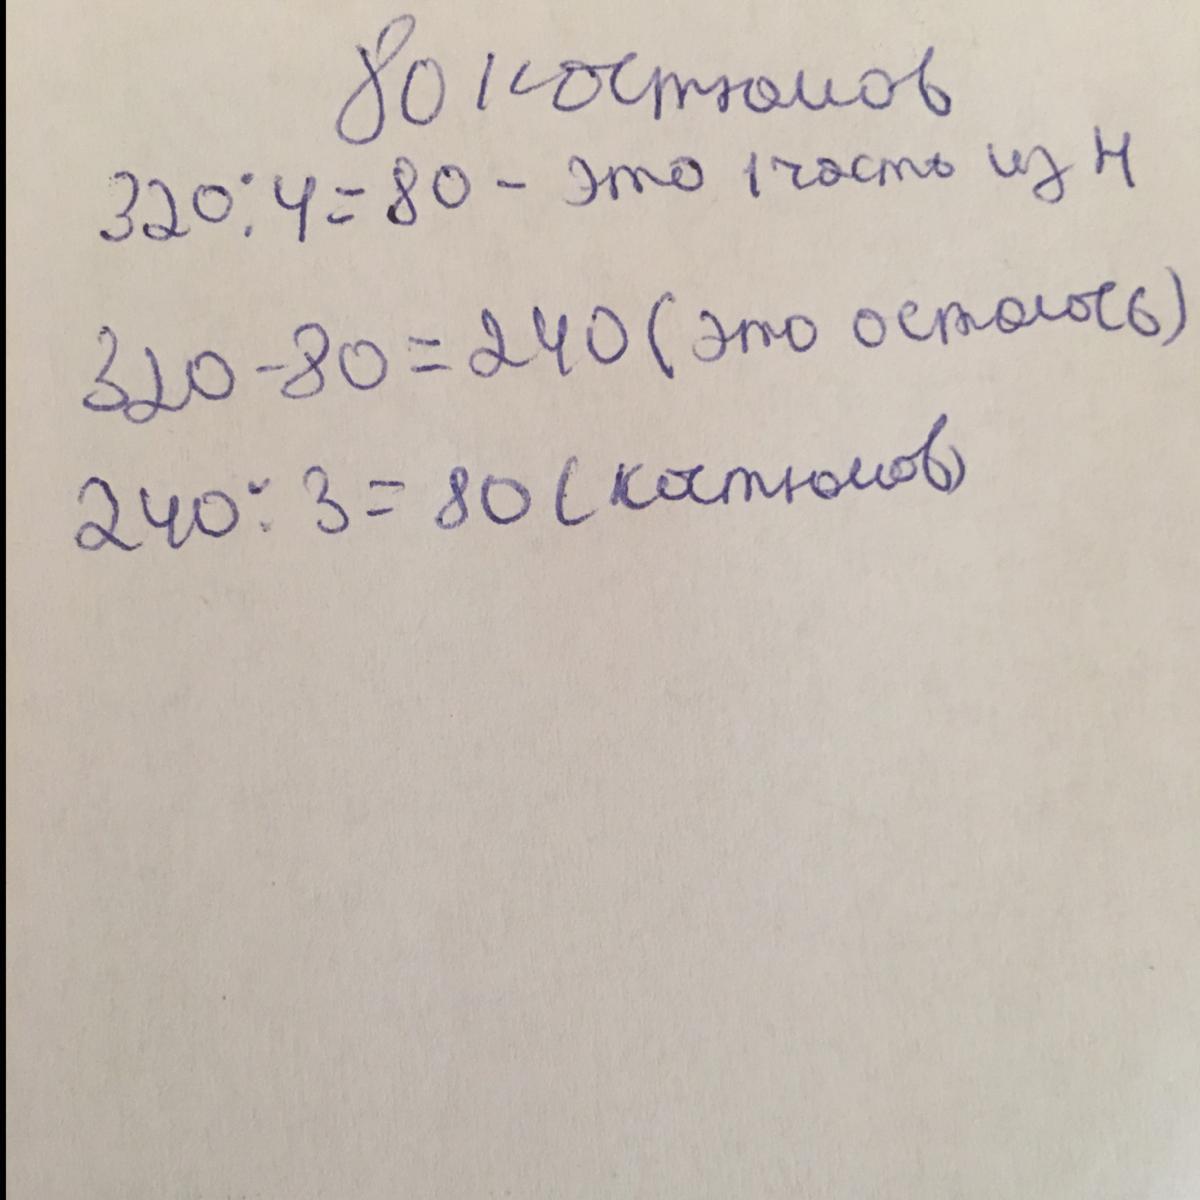 80 костюмов
320:4=80 - это 1 часть из 4
320-80=240 (это осталось)
240:3=80 (костюмов)